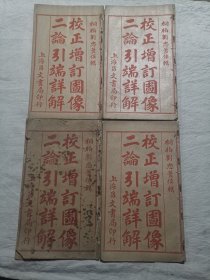 校正增訂圖像
二論引端詳解
上海昌文書局印行
校正增訂圖像
二論引端詳解
上海昌文書局印行
校正增訂圖像
二論引端詳解
上海昌文書局印行
校正增訂圖像
二論引端詳解
上海昌文書局印行